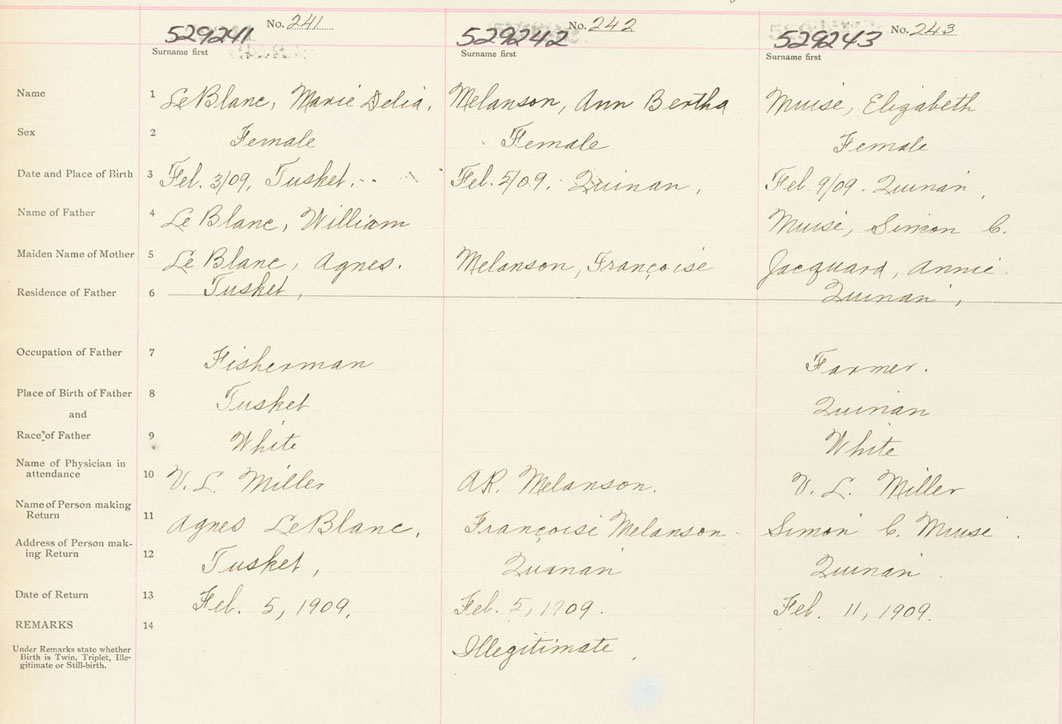 No. 241 No. 242 No. 243
529241 529242 529243
Surname first Surname first Surname first
Name 1 LeBlanc, Marie Delia. Melanson, Ann Bertha Muise, Elizabeth
Sex 2 Female Female Female
Date and Place of Birth 3 Feb. 3/09, Tusket. Feb. 5/09. Quinan, Feb. 9/09. Quinan,
Name of Father 4 Le Blanc, William Muise, Simon C.
Maiden Name of Mother 5 Le Blanc, Agnes. Melanson, Françoise Jacquard, Annie.
Residence of Father 6 Tusket, Quinan,
Occupation of Father 7 Fisherman Farmer.
Place of Birth of Father 8 Tusket Quinan
and
Race of Father 9 White White
Name of Physician in
attendance 10 V. L. Miller A.R. Melanson. V. L. Miller
Name of Person making
Return 11 Agnes LeBlanc, Françoise Melanson Simon C. Muise.
Address of Person mak-
ing Return 12 Tusket, Quinan Quinan.
Date of Return 13 Feb. 5, 1909, Feb. 5, 1909. Feb. 11, 1909.
REMARKS 14
Under Remarks state whether
Birth is Twin, Triplet, Ille-
gitimate or Still-birth.
Illegitimate.